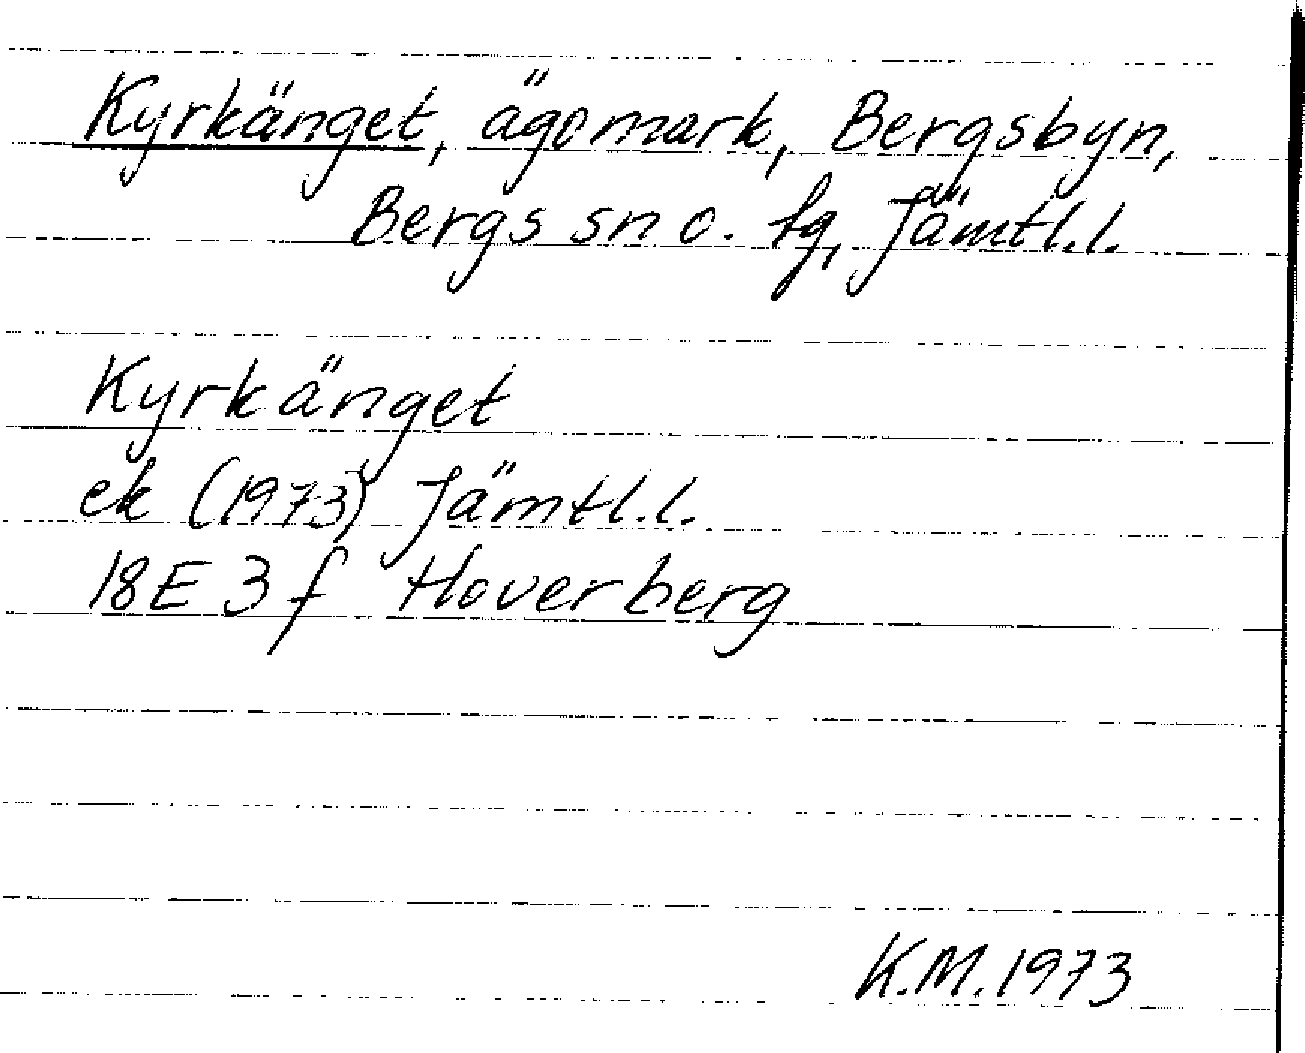 Kyrkänget, ägomark, Bergsbyn,
Bergs sn o. tg, Jämtl.l.
Kyrkänget
ek (1973) Jämtl.l.
18E 3f Hoverberg
K.M. 1973